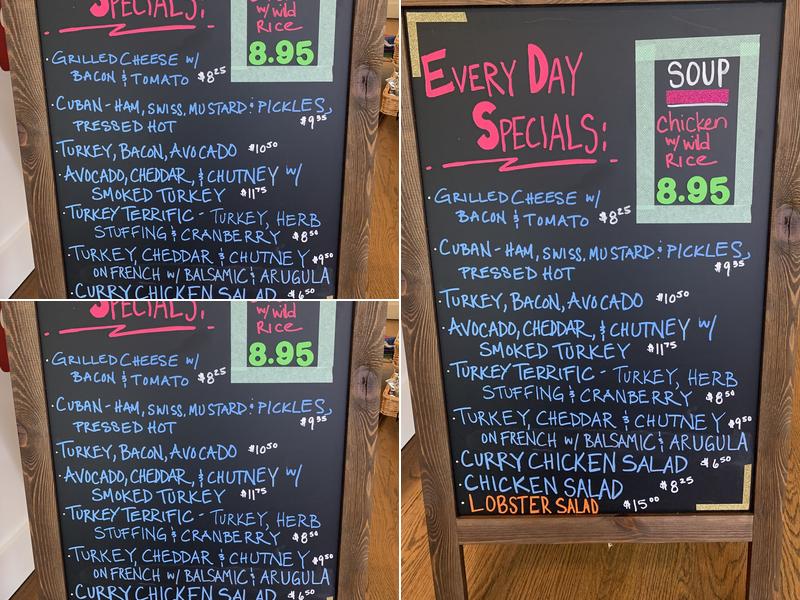 SPECIALS:
w/ wild
Rice
8.95
GRILLED CHEESE w/
BACON & TOMATO $8²⁵
CUBAN - HAM, SWISS, MUSTARD & PICKLES,
PRESSED HOT
TURKEY, BACON, AVOCADO $10⁵⁰
AVOCADO, CHEDDAR, & CHUTNEY w/
SMOKED TURKEY $11⁷⁵
TURKEY TERRIFIC - TURKEY, HERB
STUFFING & CRANBERRY $8⁵⁰
TURKEY, CHEDDAR & CHUTNEY $9⁵⁰
ON FRENCH w/ BALSAMIC & ARUGULA
CURRY CHICKEN SALAD $6⁵⁰
SPECIALS:
w/ wild
Rice
8.95
GRILLED CHEESE w/
BACON & TOMATO $8²⁵
CUBAN - HAM, SWISS, MUSTARD & PICKLES,
PRESSED HOT
TURKEY, BACON, AVOCADO $10⁵⁰
AVOCADO, CHEDDAR, & CHUTNEY w/
SMOKED TURKEY $11⁷⁵
TURKEY TERRIFIC - TURKEY, HERB
STUFFING & CRANBERRY $8⁵⁰
TURKEY, CHEDDAR & CHUTNEY $9⁵⁰
ON FRENCH w/ BALSAMIC & ARUGULA
CURRY CHICKEN SALAD $6⁵⁰
EVERY DAY
SPECIALS:
SOUP
Chicken
w/ wild
Rice
8.95
GRILLED CHEESE w/
BACON & TOMATO $8²⁵
CUBAN - HAM, SWISS, MUSTARD & PICKLES,
PRESSED HOT
TURKEY, BACON, AVOCADO $10⁵⁰
AVOCADO, CHEDDAR, & CHUTNEY w/
SMOKED TURKEY $11⁷⁵
TURKEY TERRIFIC - TURKEY, HERB
STUFFING & CRANBERRY $8⁵⁰
TURKEY, CHEDDAR & CHUTNEY $9⁵⁰
ON FRENCH w/ BALSAMIC & ARUGULA
CURRY CHICKEN SALAD $6⁵⁰
CHICKEN SALAD $8²⁵
LOBSTER SALAD $15⁰⁰